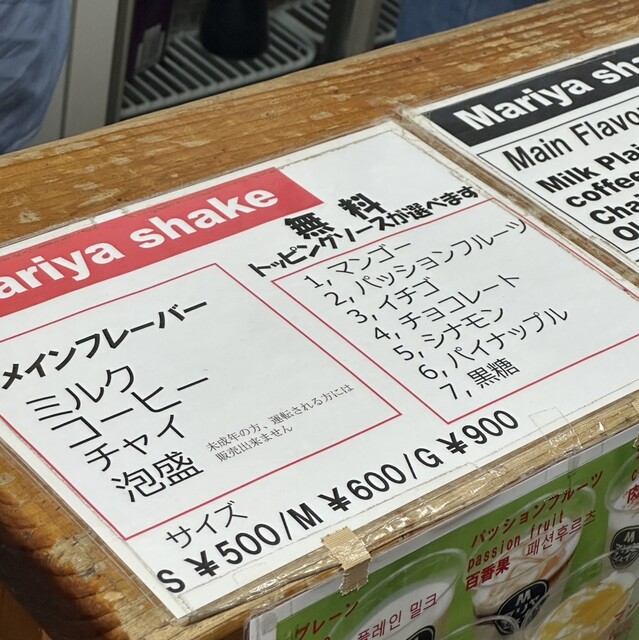 ariya shake
無料
トッピングソースが選べます
メインフレーバー
ミルク
コーヒー
チャイ
泡盛
未成年の方、運転される方には
販売出来ません
1, マンゴー
2, パッションフルーツ
3, イチゴ
4, チョコレート
5, シナモン
6, パイナップル
7, 黒糖
サイズ
S ¥500/M ¥600/G ¥900
Mariya sha
Main Flavo
Milk Plai
coffee
Cha
プレーン
플레인 밀크
パッションフルーツ
passion fruit
百香果 패션후르츠
M